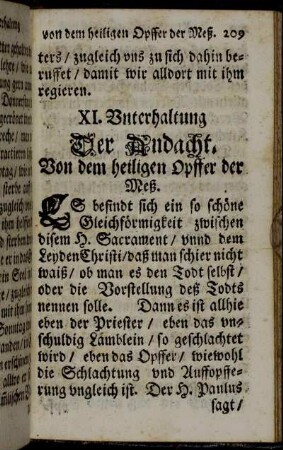 von dem heiligen Opffer der Meß. 209
ters / zugleich vns zu sich dahin be-
ruffet / damit wir alldort mit ihm
regieren.
XI. Vnterhaltung
Der Andacht.
Von dem heiligen Opffer der
Meß.
ES befindt sich ein so schöne
Gleichförmigkeit zwischen
disem H. Sacrament / vnnd dem
Leyden Christi / daß man schier nicht
waiß / ob man es den Todt selbst /
oder die Vorstellung deß Todts
nennen solle. Dann es ist allhie
eben der Priester / eben das vn-
schuldig Lämblein / so geschlachtet
wird / eben das Opffer / wiewohl
die Schlachtung vnd Auffopffe-
rung vngleich ist. Der H. Paulus
sagt /